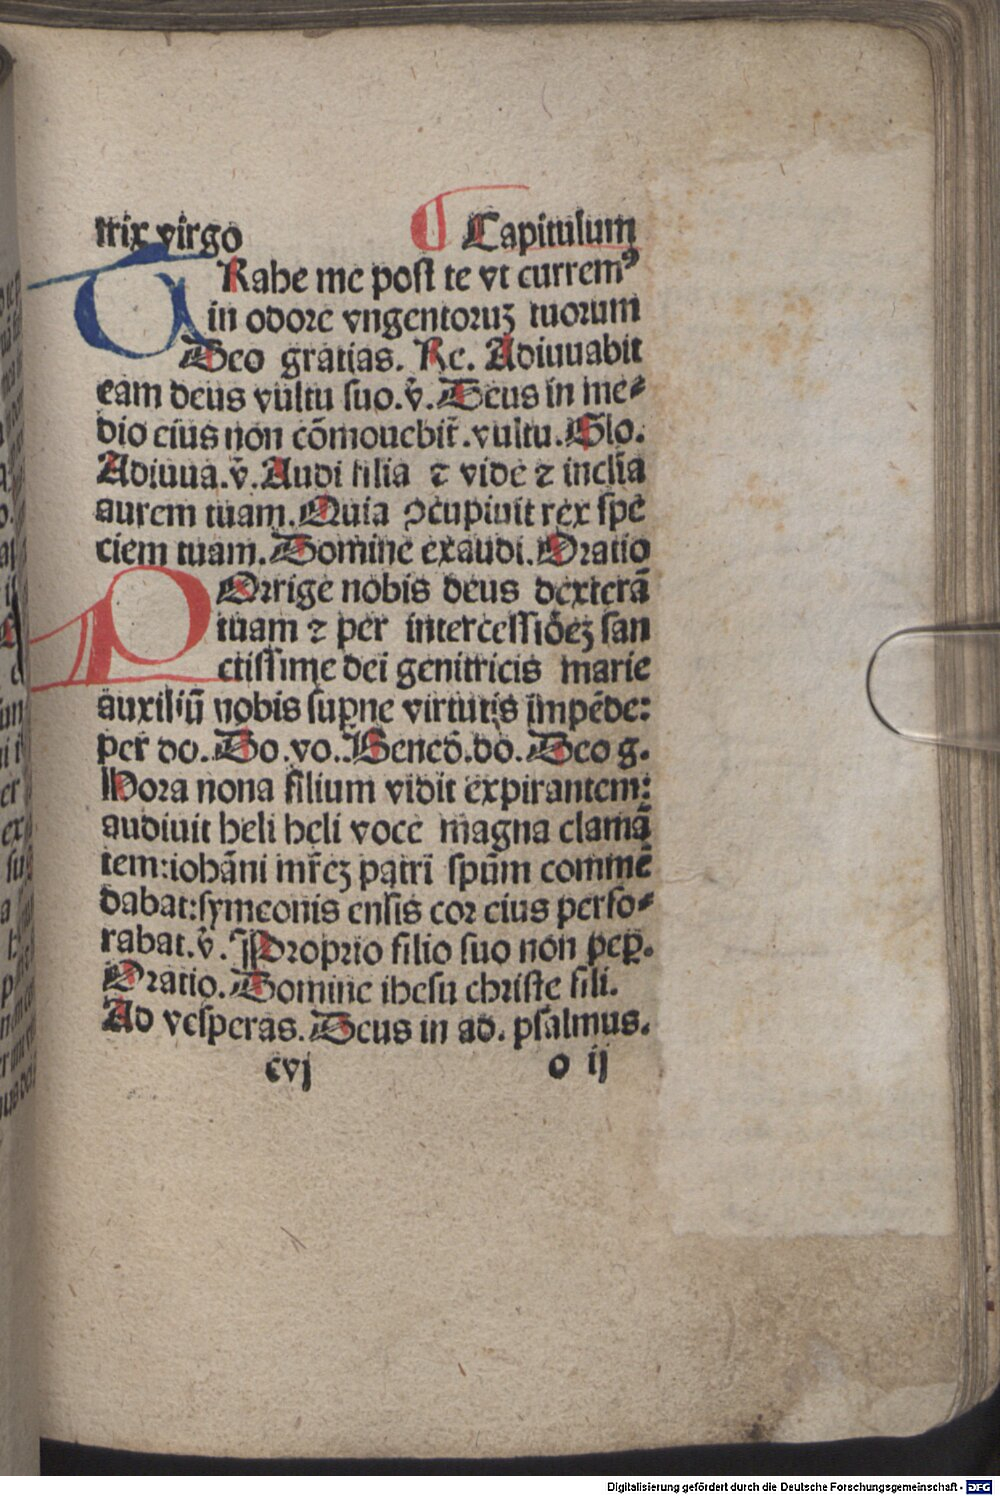 trix virgo ¶ Capitulum
TRahe me post te vt currem⁹
in odore vngentoruʒ tuorum
Deo gratias. Re. Adiuuabit
eam deus vultu suo. v̄. Deus in me⸗
dio eius non cōmouebit̄. vultu. Glo.
Adiuua. v̄. Audi filia ⁊ vide ⁊ inclīa
aurem tuam. Quia ꝯcupiuit rex spe
ciem tuam. Domine exaudi. Oratio
POrrige nobis deus dexterā
tuam ⁊ per intercessiōeʒ san
ctissime dei genitricis marie
auxiliū nobis suꝑne virtutis īmpēde:
per do. Do. vo. Bened̄. dō. Deo g.
Hora nona filium vidit expirantem:
audiuit heli heli voce magna clamā
tem: iohāni mr̄eʒ patri spūm commē
dabat: symeonis ensis cor eius perfo⸗
rabat. v̄. Proprio filio suo non peꝑ.
Oratio. Domine ihesu christe fili.
Ad vesperas. Deus in ad. psalmus.
cvj o ij
Digitalisierung gefördert durch die Deutsche Forschungsgemeinschaft - DFG